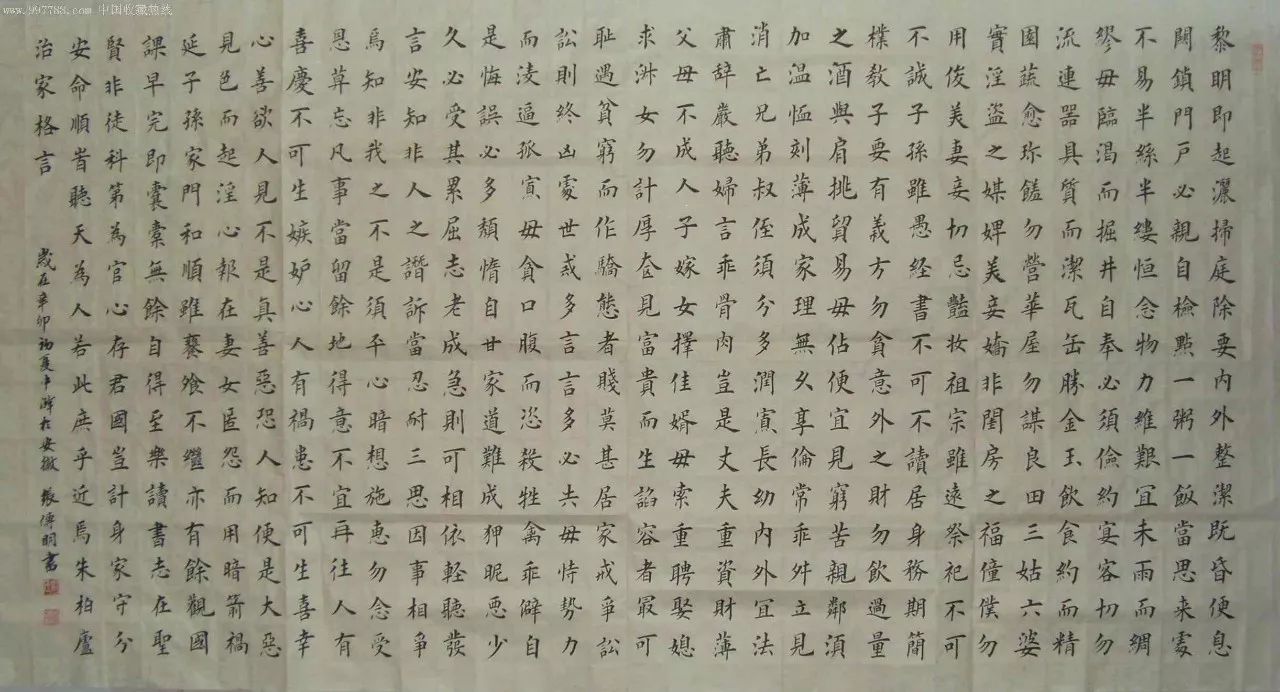 www.997788.com 中国收藏热线
黎明即起灑掃庭除要內外整潔既昏便息
關鎖門戶必親自檢點一粥一飯當思来處
不易半絲半縷恒念物力維艱宜未雨而綢
繆毋臨渴而掘井自奉必須儉約宴客切勿
流連器具質而潔瓦缶勝金玉飲食約而精
園蔬愈珍饈勿營華屋勿謀良田三姑六婆
實淫盜之媒婢美妾嬌非閨房之福僮僕勿
用俊美妻妾切忌豔妝祖宗雖遠祭祀不可
不誠子孫雖愚经書不可不讀居身務期簡
樸教子要有義方勿貪意外之財勿飲過量
之酒與肩挑貿易毋佔便宜見窮苦親鄰須
加温恤刻薄成家理無久享倫常乖舛立見
消亡兄弟叔侄須分多潤寡長幼內外宜法
肅辞嚴聽婦言乖骨肉豈是丈夫重資財薄
父母不成人子嫁女擇佳婿毋索重聘娶媳
求淑女勿計厚奩見富貴而生諂容者最可
恥遇貧窮而作驕態者賤莫甚居家戒爭訟
訟則終凶處世戒多言言多必失毋恃勢力
而淩逼孤寡毋貪口腹而恣殺牲禽乖僻自
是悔誤必多頹惰自甘家道難成狎昵惡少
久必受其累屈志老成急則可相依輕聽發
言安知非人之譖訴當忍耐三思因事相爭
焉知非我之不是須平心暗想施惠勿念受
恩莫忘凡事當留餘地得意不宜再往人有
喜慶不可生嫉妒心人有禍患不可生喜幸
心善欲人見不是真善惡恐人知便是大惡
見色而起淫心報在妻女匿怨而用暗箭禍
延子孫家門和順雖饔飧不繼亦有餘觀國
課早完即囊橐無餘自得至樂讀書志在聖
賢非徒科第為官心存君國豈計身家守分
安命順旹聽天為人若此庶乎近焉朱柏廬
治家格言
歲在辛卯初夏於安徽 張傳明書